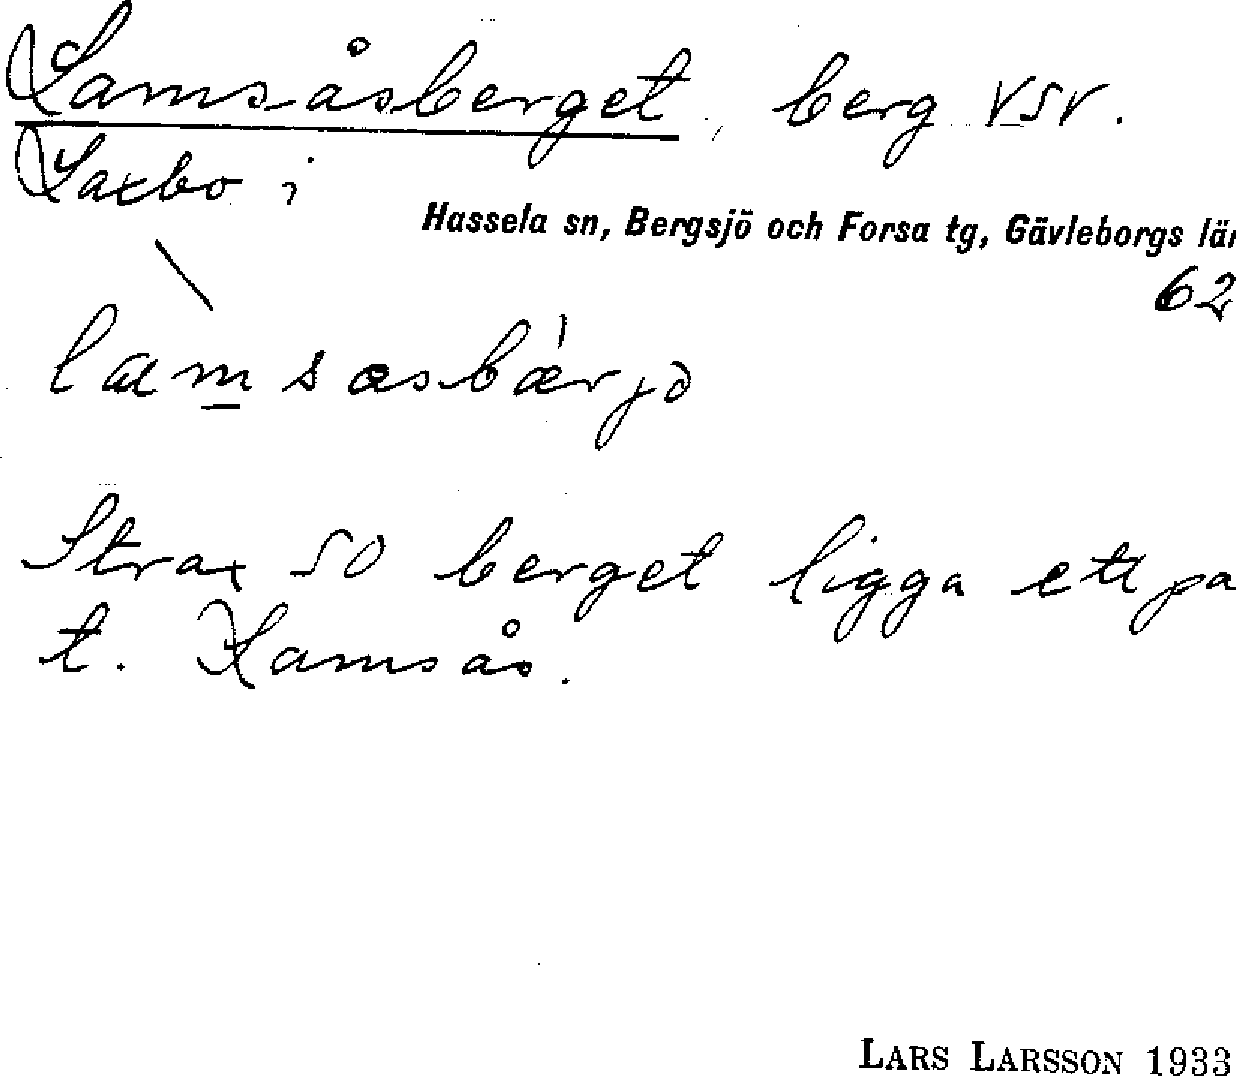 Lamsåsberget, berg VSV.
Laxbo i
Hassela sn, Bergsjö och Forsa tg, Gävleborgs län
62
Strax SO berget ligga ett pa
t. Lamsås.
LARS LARSSON 1933